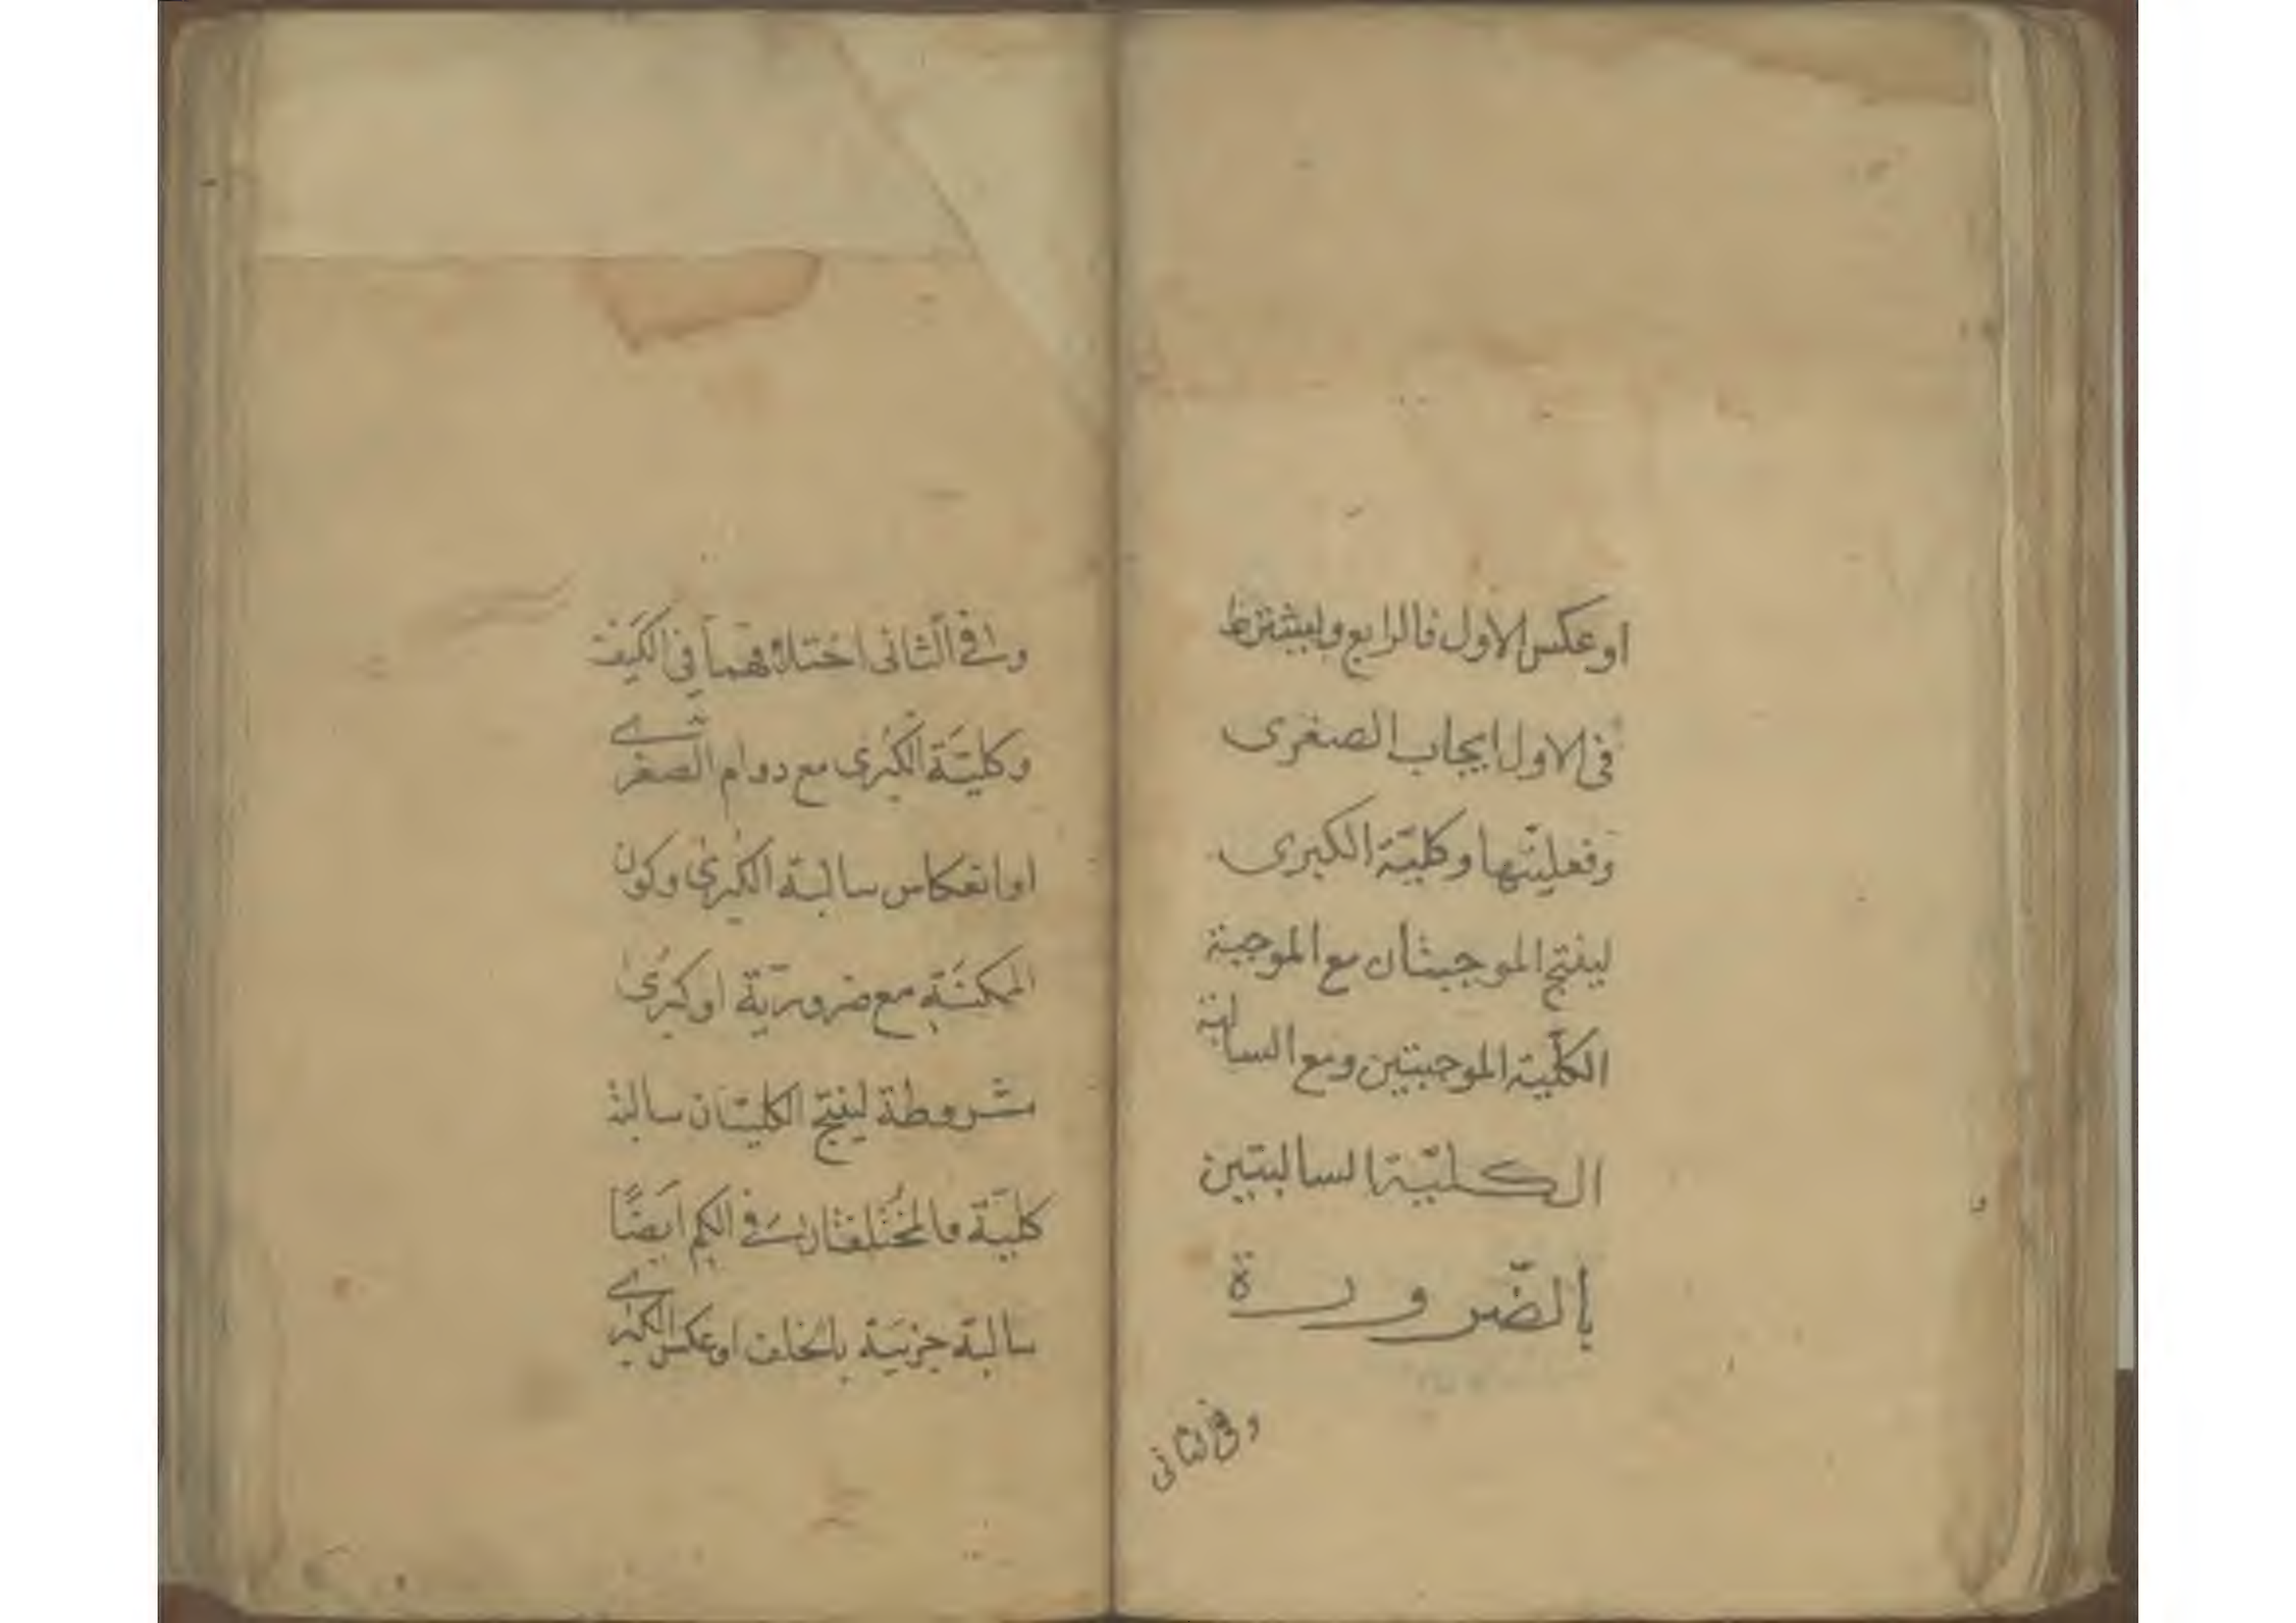 او عكس الاول فالرابع ويشترط
فى الاول ايجاب الصغرى
وفعليتها وكليّة الكبرى
لينتج الموجبتان مع الموجبة
الكلّية الموجبتين ومع السالبة
الكليّة السالبتين
بالضّرورة
وفى الثانى
وفي الثانى اختلافهما فى الكيف
وكليّة الكبرى مع دوام الصغرى
او انعكاس سالبة الكبرى وكون
الممكنة مع ضروريّة او كبرى
مشروطة لينتج الكليتان سالبة
كليّة والمختلفتان في الكم ايضًا
سالبة جزئية بالخلف او عكس الكبرى